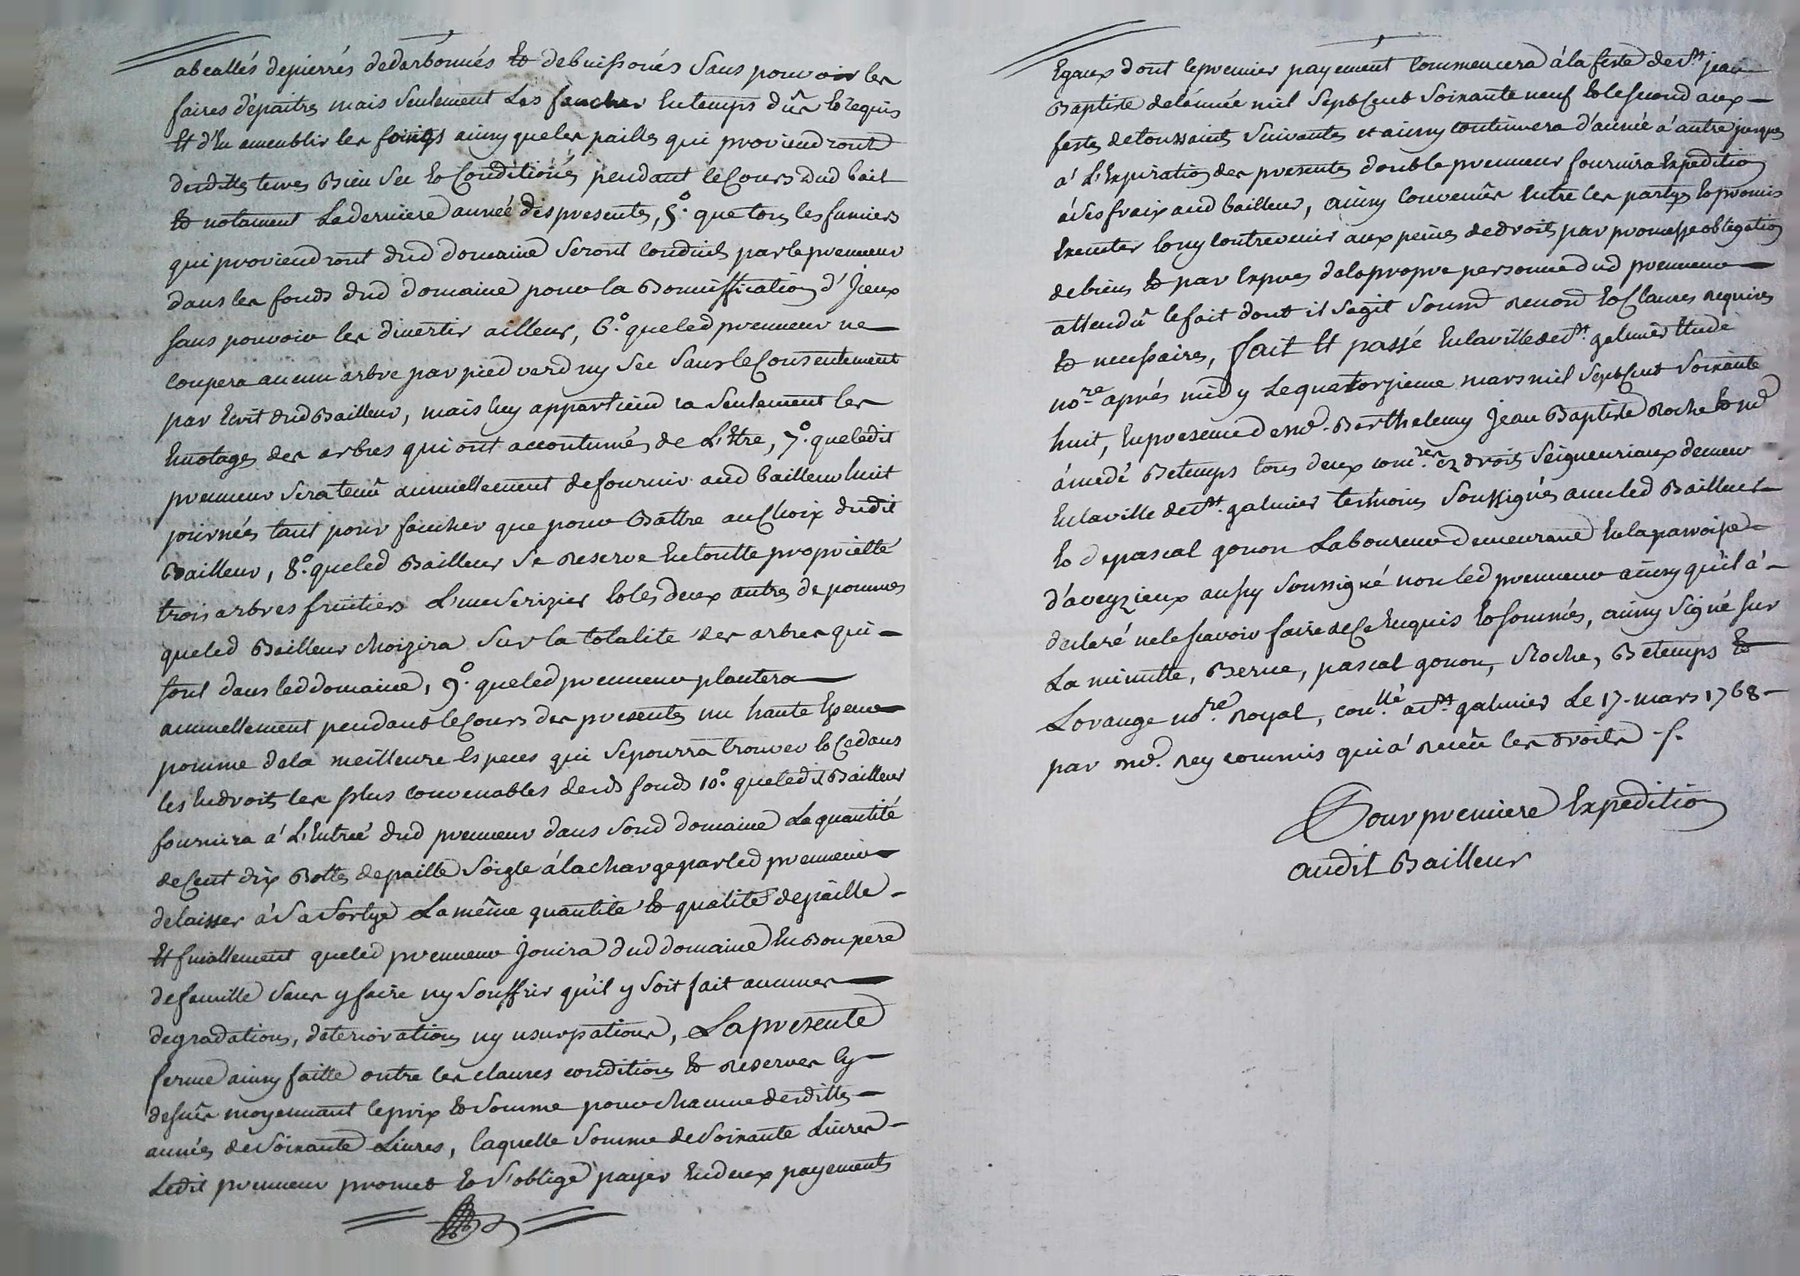 abeallés depierrés dedarbonnés et debuissonés sans pouvoir les
faires depaitres mais seulement Les faucher En temps dûe Et requis
Et d'En ameublir les foings ainsy queles pailles qui proviendront
desdittes terres Bien Sec Et Conditionés pendant le Cours dud bail
Et notament La derniere année des presentes, 5°. que tous les fumiers
qui proviendront dud domaine Seront Conduits par le preneur
dans les fonds dud domaine pour la Bonniffication d'Jceux
sans pouvoir les divertir ailleur, 6°. queled preneur ne
coupera aucun arbre par pied verd ny Sec Sans le Consentement
par Ecrit dud Bailleur, mais luy appartiendra Seulement les
Emotages des arbres qui ont accoutumés de L'Etre, 7°. queledit
preneur Sera tenû annuellement de fournir aud bailleur huit
journées tant pour faucher que pour Battre au Choix dudit
Bailleur, 8°. queled Bailleur Se Reserve En toutte proprietté
trois arbres fruitiers L'un Serizier Et les deux autres de pommes
queled Bailleur choizira Sur la totalité des arbres qui
sont dans led domaine, 9°. queled preneur plantera
annuellement pendant le Cours des presentes un haute
pomme dela meilleure Especes qui Se pourra trouver Et Ce dans
les Endroits les plus convenables desds fonds 10°. queledit Bailleur
fournira à L'Entrée dud preneur dans Sond domaine La quantité
de Cent dix Bottes de paille Soigle à la charge par led preneur
delaisser à Sa Sortye La même quantité Et qualité de paille
Et finallement queled preneur Jouira dud domaine En Bon pere
de famille Sans y faire ny Souffrir qu'il y Soit fait aucunes
degradations, deteriorations ny usurpations, La presente
ferme ainsy faitte outre les clauses conditions Et Reserves Cy
dessûs moyennant le prix Et Somme pour chacune desdittes
années de Soixante Livres, laquelle Somme de Soixante Livres
Ledit preneur promet Et S'oblige payer En deux payements
Egaux dont le premier payement Commencera à la feste de St jean
Baptiste de lannée mil Sept Cent Soixante neuf Et le Second aux
festes de toussaints Suivantes et ainsy Continuera d'année à autre jusques
à L'Expiration des presentes dont le preneur fournira Expedition
à Ses fraix aud bailleur, ainsy Convenûs Entre les partyes Et promis
Executer Et ny Contrevenir aux peines de droits par promesse obligation
de biens Et par Expres de la propre personne dud preneur
attendû le fait dont il Sagit Soumn Renon Et Clauses Requises
Et necessaires, fait Et passé En la ville de St. galmier Etude
nore. aprés midy Le quatorzieme mars mil Sept Cent Soixante
huit, En presence de me. Barthelemy Jean Baptiste Roche Et me
amedé Betemps tous deux comres. Ez droits Seigneuriaux demeur
En la ville de St. galmier temoins Soussignés avec led Bailleur
Et de pascal gonon Laboureur demeurant En la parroisse
d'aveyzieux aussy Soussigné non led preneur ainsy qu'il à
declaré ne le Scavoir faire de Ce Enquis Et Sommés, ainsy Signé Sur
La minutte, Berne, pascal gonon, Roche, Betemps Et
Lorange nore. Royal, conllé à St. galmier Le 17. mars 1768
par me. Rey commis qui à Reçû les droits
Pour premiere Expedition
audit Bailleur